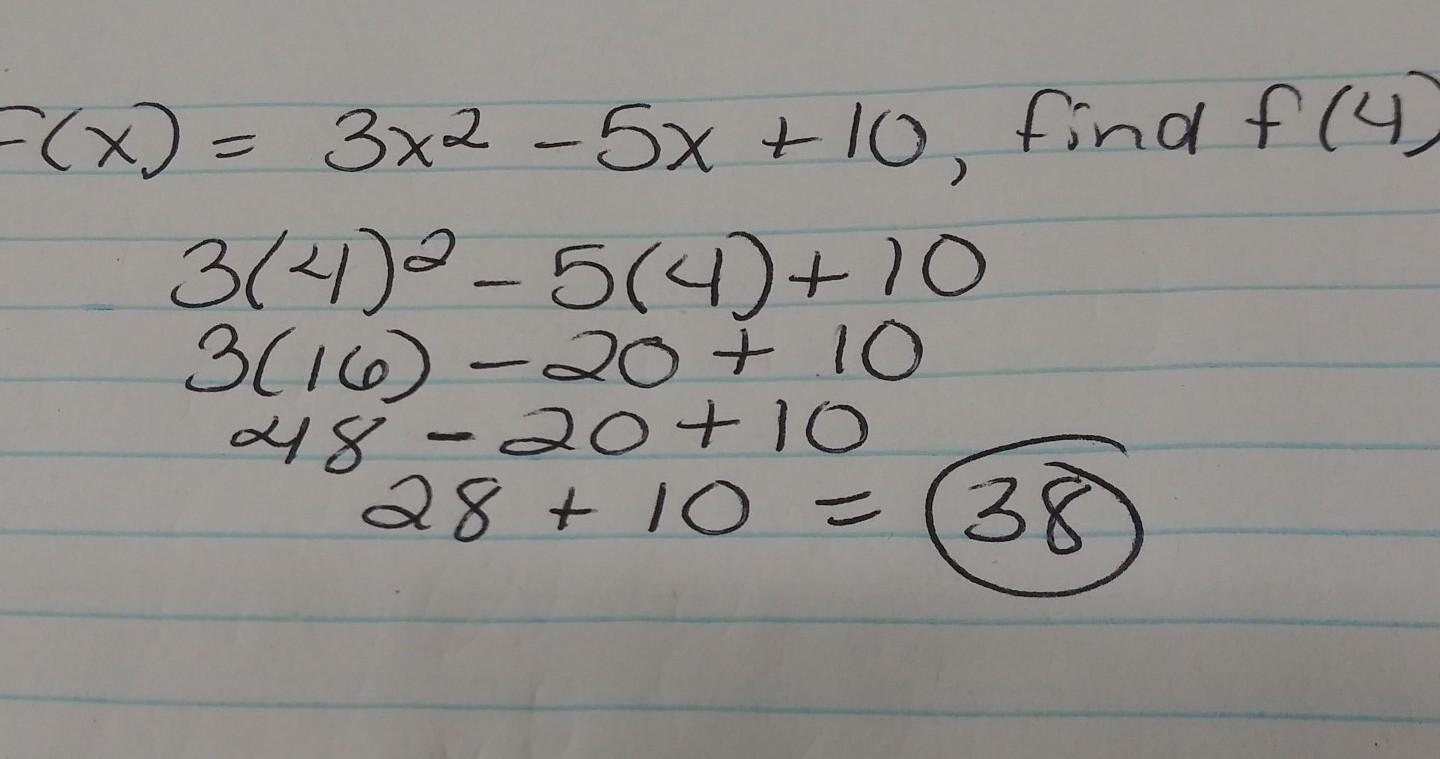 f(x) = 3x² - 5x + 10, find f(4)
3(4)² - 5(4) + 10
3(16) - 20 + 10
48 - 20 + 10
28 + 10 = 38